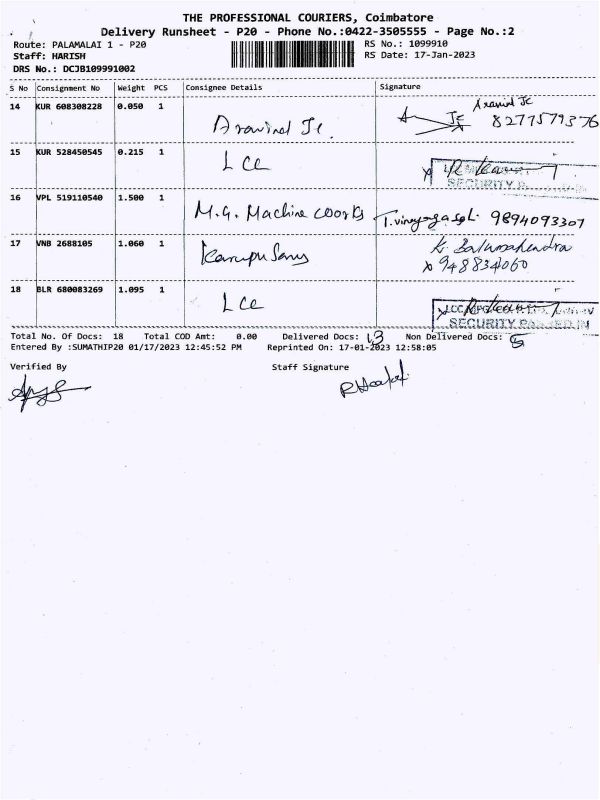 THE PROFESSIONAL COURIERS, Coimbatore
Delivery Runsheet - P20 - Phone No.:0422-3505555 - Page No.:2
Route: PALAMALAI 1 - P20 RS No.: 1099910
Staff: HARISH RS Date: 17-Jan-2023
DRS No.: DCJB109991002
S No Consignment No Weight PCS Consignee Details Signature
14 KUR 608308228 0.050 1 Aravind Jc. Aravind Jc 8277579376
15 KUR 528450545 0.215 1 Lcc SECURITY
16 VPL 519110540 1.500 1 M.G. Machine works 9894093307
17 VNB 2688105 1.060 1 K. Balamahendra
948834060
18 BLR 680083269 1.095 1 Lcc
SECURITY PASSED IN
Total No. Of Docs: 18 Total COD Amt: 0.00 Delivered Docs: 13 Non Delivered Docs: 5
Entered By :SUMATHIP20 01/17/2023 12:45:52 PM Reprinted On: 17-01-2023 12:58:05
Verified By Staff Signature